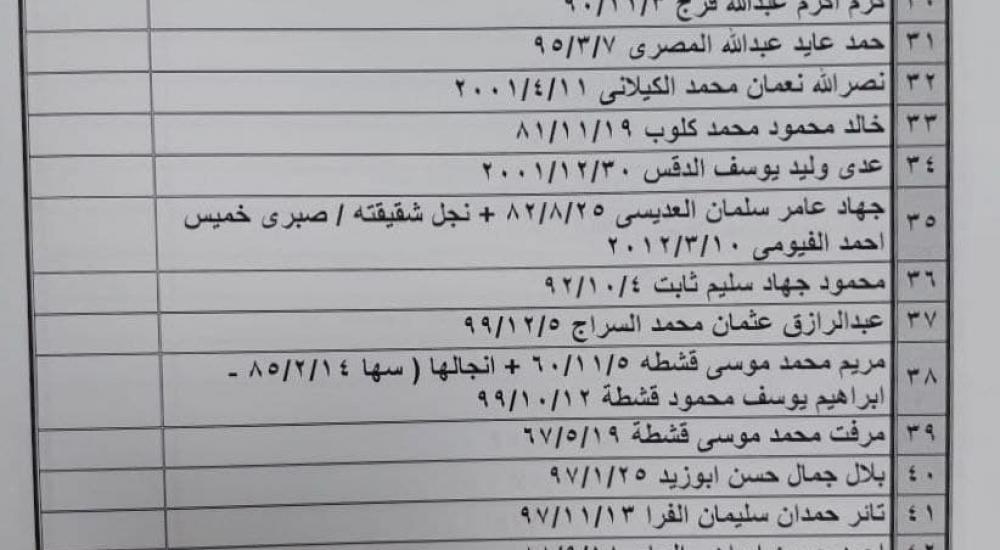 كرم اكرم عبدالله فرج
٣١ حمد عايد عبدالله المصرى ٩٥/٣/٧
٣٢ نصرالله نعمان محمد الكيلانى ٢٠٠١/٤/١١
٣٣ خالد محمود محمد كلوب ٨١/١١/١٩
٣٤ عدى وليد يوسف الدقس ٢٠٠١/١٢/٣٠
٣٥ جهاد عامر سلمان العديسى ٨٢/٨/٢٥ + نجل شقيقته / صبرى خميس
احمد الفيومى ٢٠١٢/٣/١٠
٣٦ محمود جهاد سليم ثابت ٩٢/١٠/٤
٣٧ عبدالرازق عثمان محمد السراج ٩٩/١٢/٥
٣٨ مريم محمد موسى قشطه ٦٠/١١/٥ + انجالها ( سها ٨٥/٢/١٤ -
ابراهيم يوسف محمود قشطة ٩٩/١٠/١٢
٣٩ مرفت محمد موسى قشطة ٦٧/٥/١٩
٤٠ بلال جمال حسن ابوزيد ٩٧/١/٢٥
٤١ تانر حمدان سليمان الفرا ٩٧/١١/١٣
٤٢